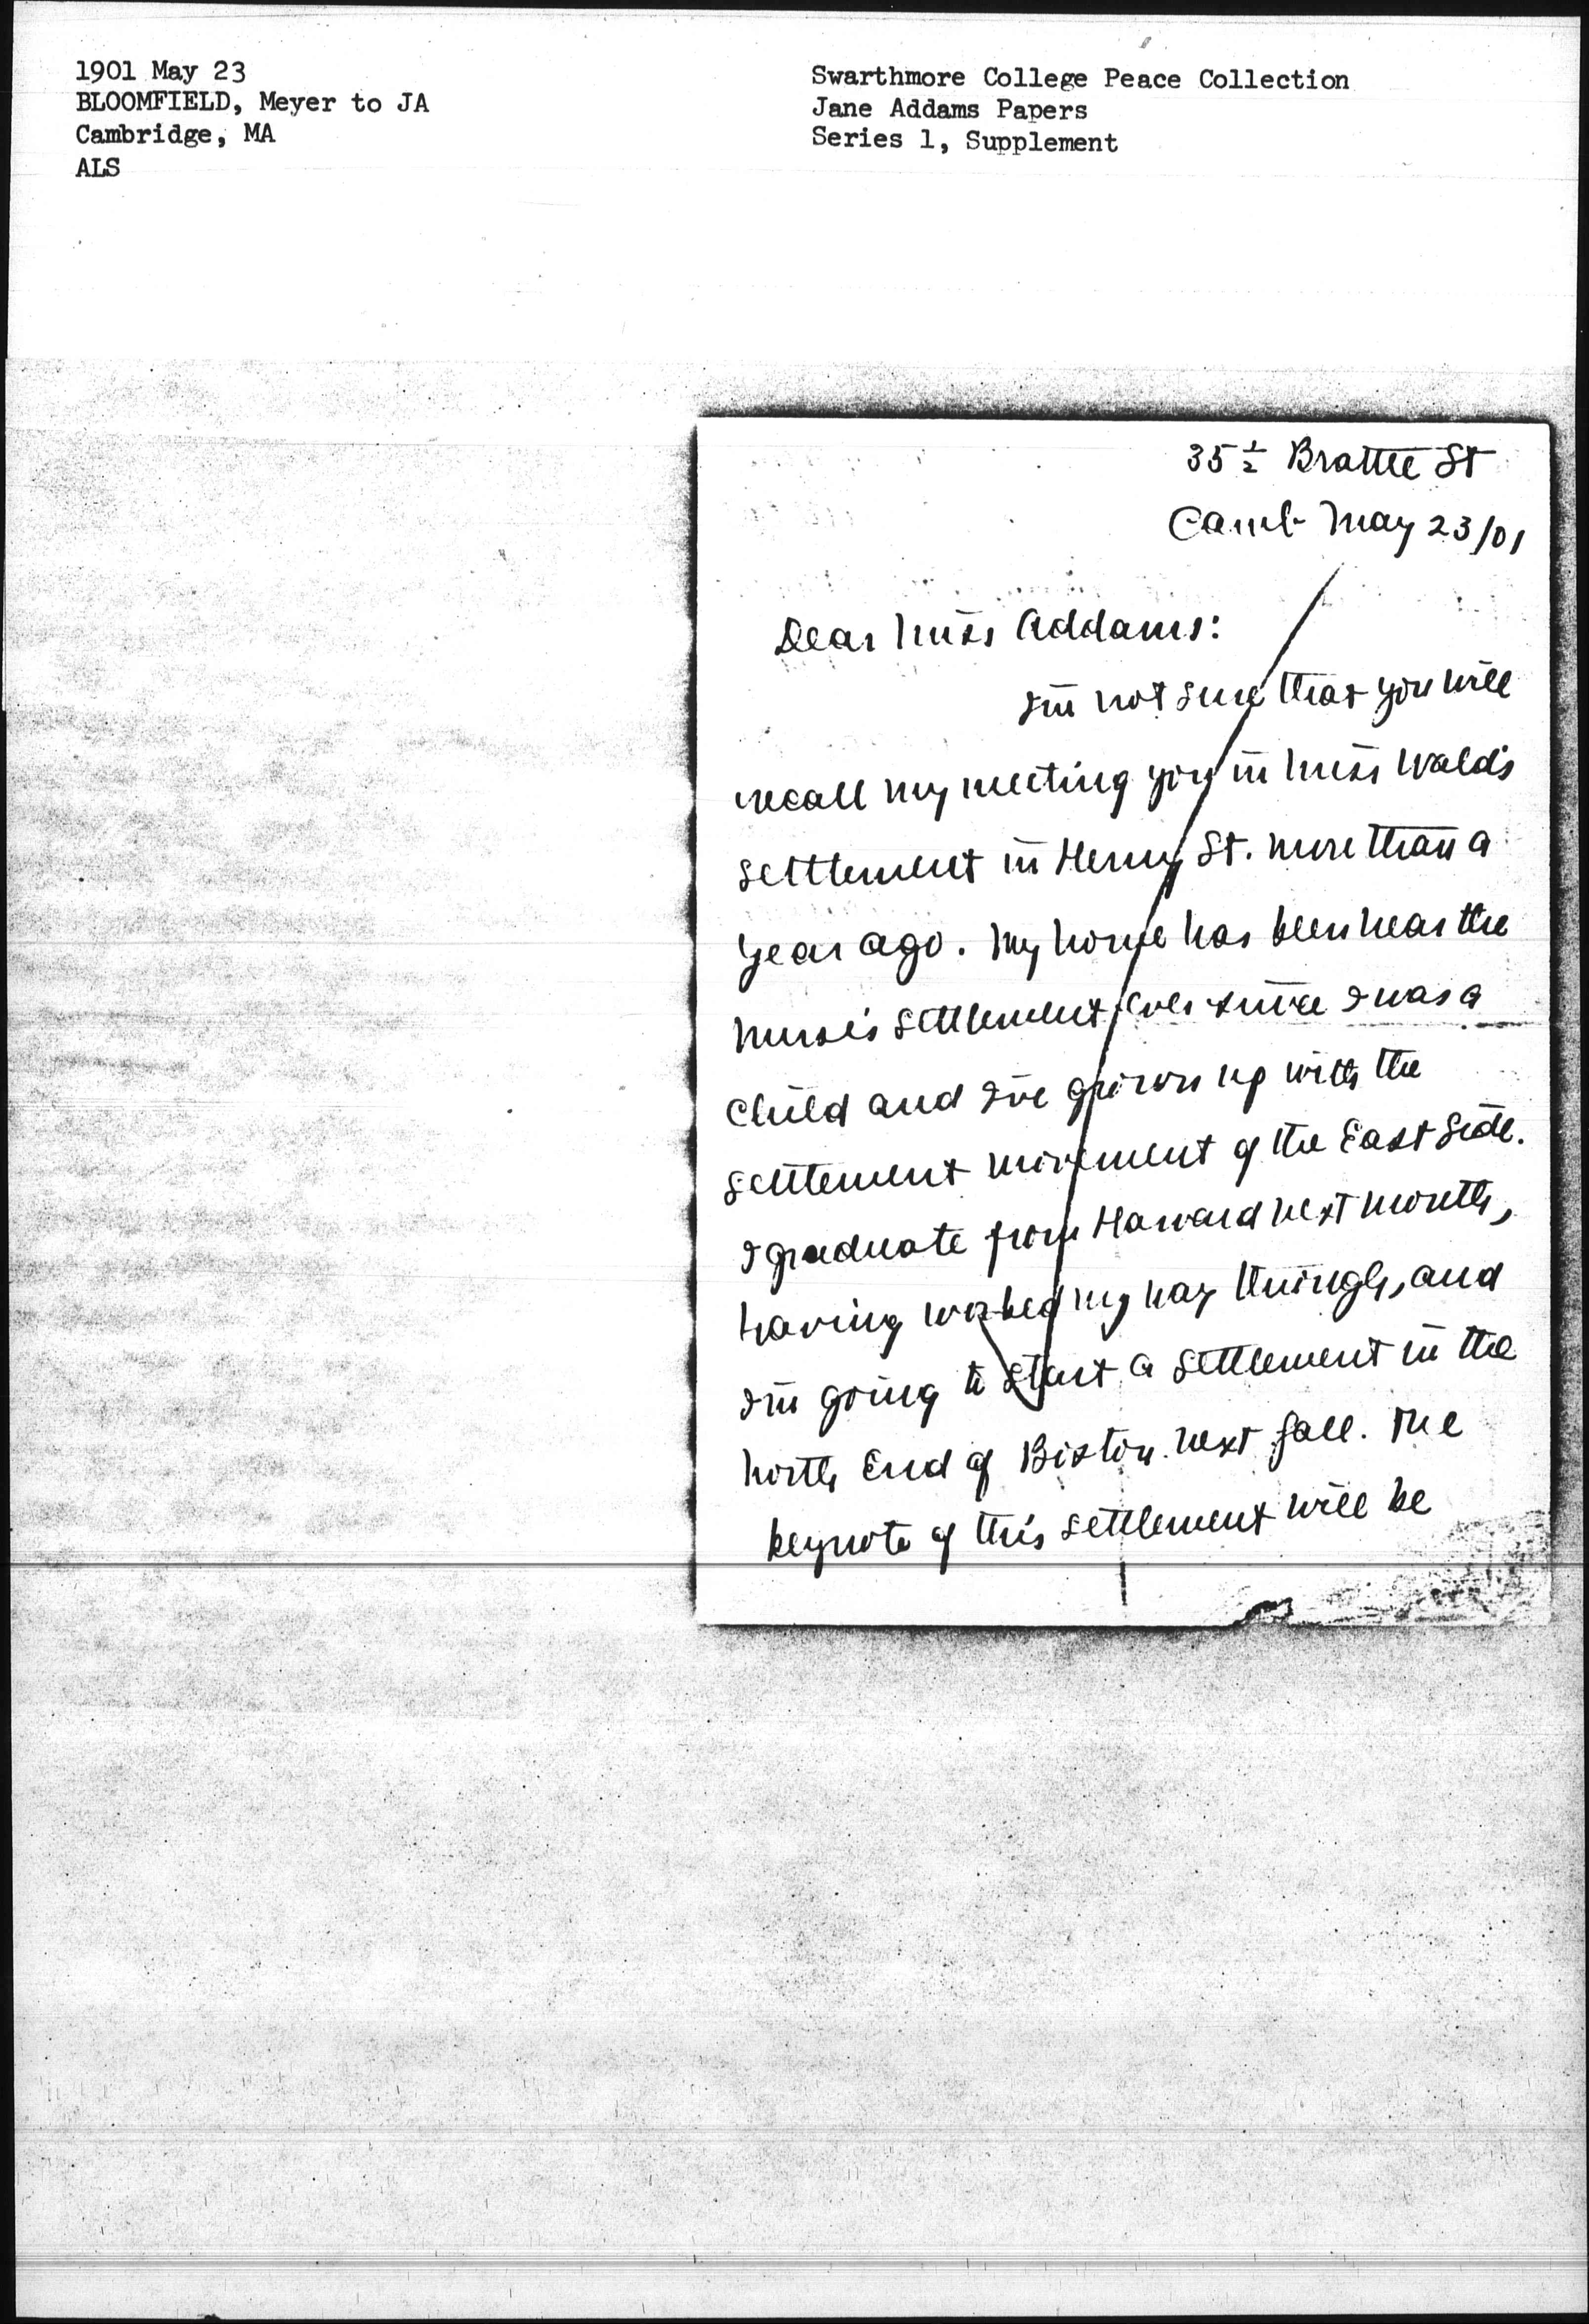 1901 May 23
BLOOMFIELD, Meyer to JA
Cambridge, MA
ALS
Swarthmore College Peace Collection
Jane Addams Papers
Series 1, Supplement
35 1/2 Brattle St
Camb May 23/01
Dear Miss Addams:
I'm not sure that you will
recall my meeting you in Miss Wald's
settlement in Henry St. more than a
year ago. My home has been near the
Nurse's settlement ever since I was a
child and I've grown up with the
settlement movement of the East Side.
I graduate from Harvard next month,
having worked my way through, and
I'm going to start a settlement in the
North End of Boston next fall. The
keynote of this settlement will be